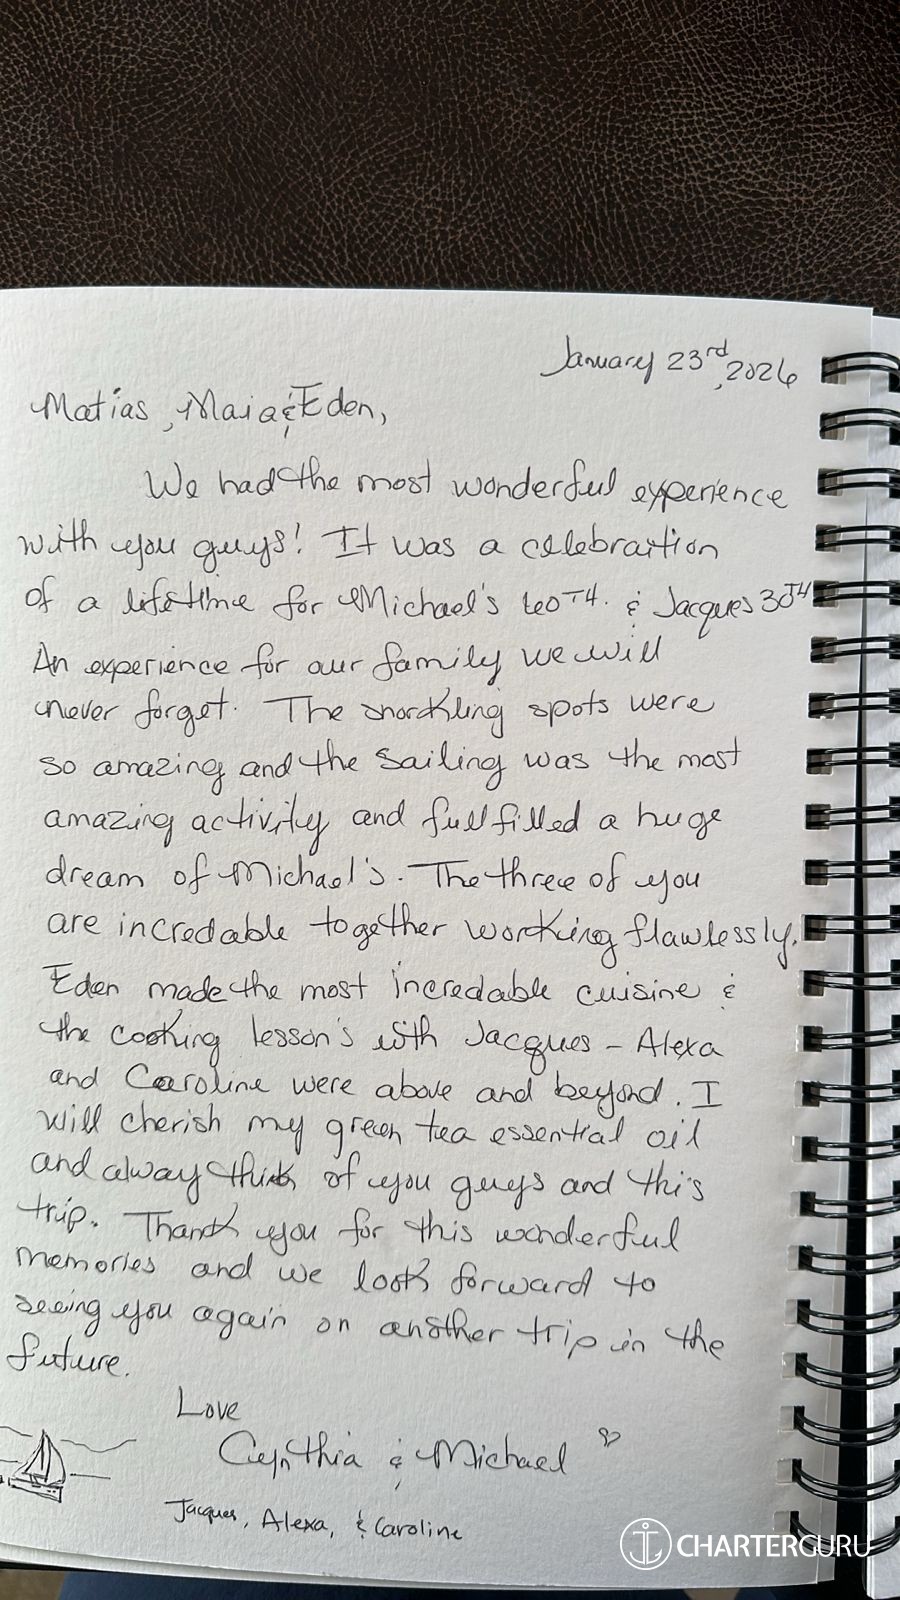 January 23rd, 2026
Matias, Maia & Eden,
We had the most wonderful experience
with you guys! It was a celebraition
of a lifetime for Michael's 60TH. & Jacques 30TH
An experience for our family we will
never forget. The snorkling spots were
so amazing and the sailing was the most
amazing activity and fullfilled a huge
dream of Michael's. The three of you
are incredable together working flawlessly.
Eden made the most incredable cuisine &
the cooking lesson's with Jacques - Alexa
and Caroline were above and beyond. I
will cherish my green tea essential oil
and alway think of you guys and this
trip. Thank you for this wonderful
memories and we look forward to
seeing you again on another trip in the
future.
Love
Cynthia & Michael
Jacques, Alexa, & Caroline
CHARTERGURU